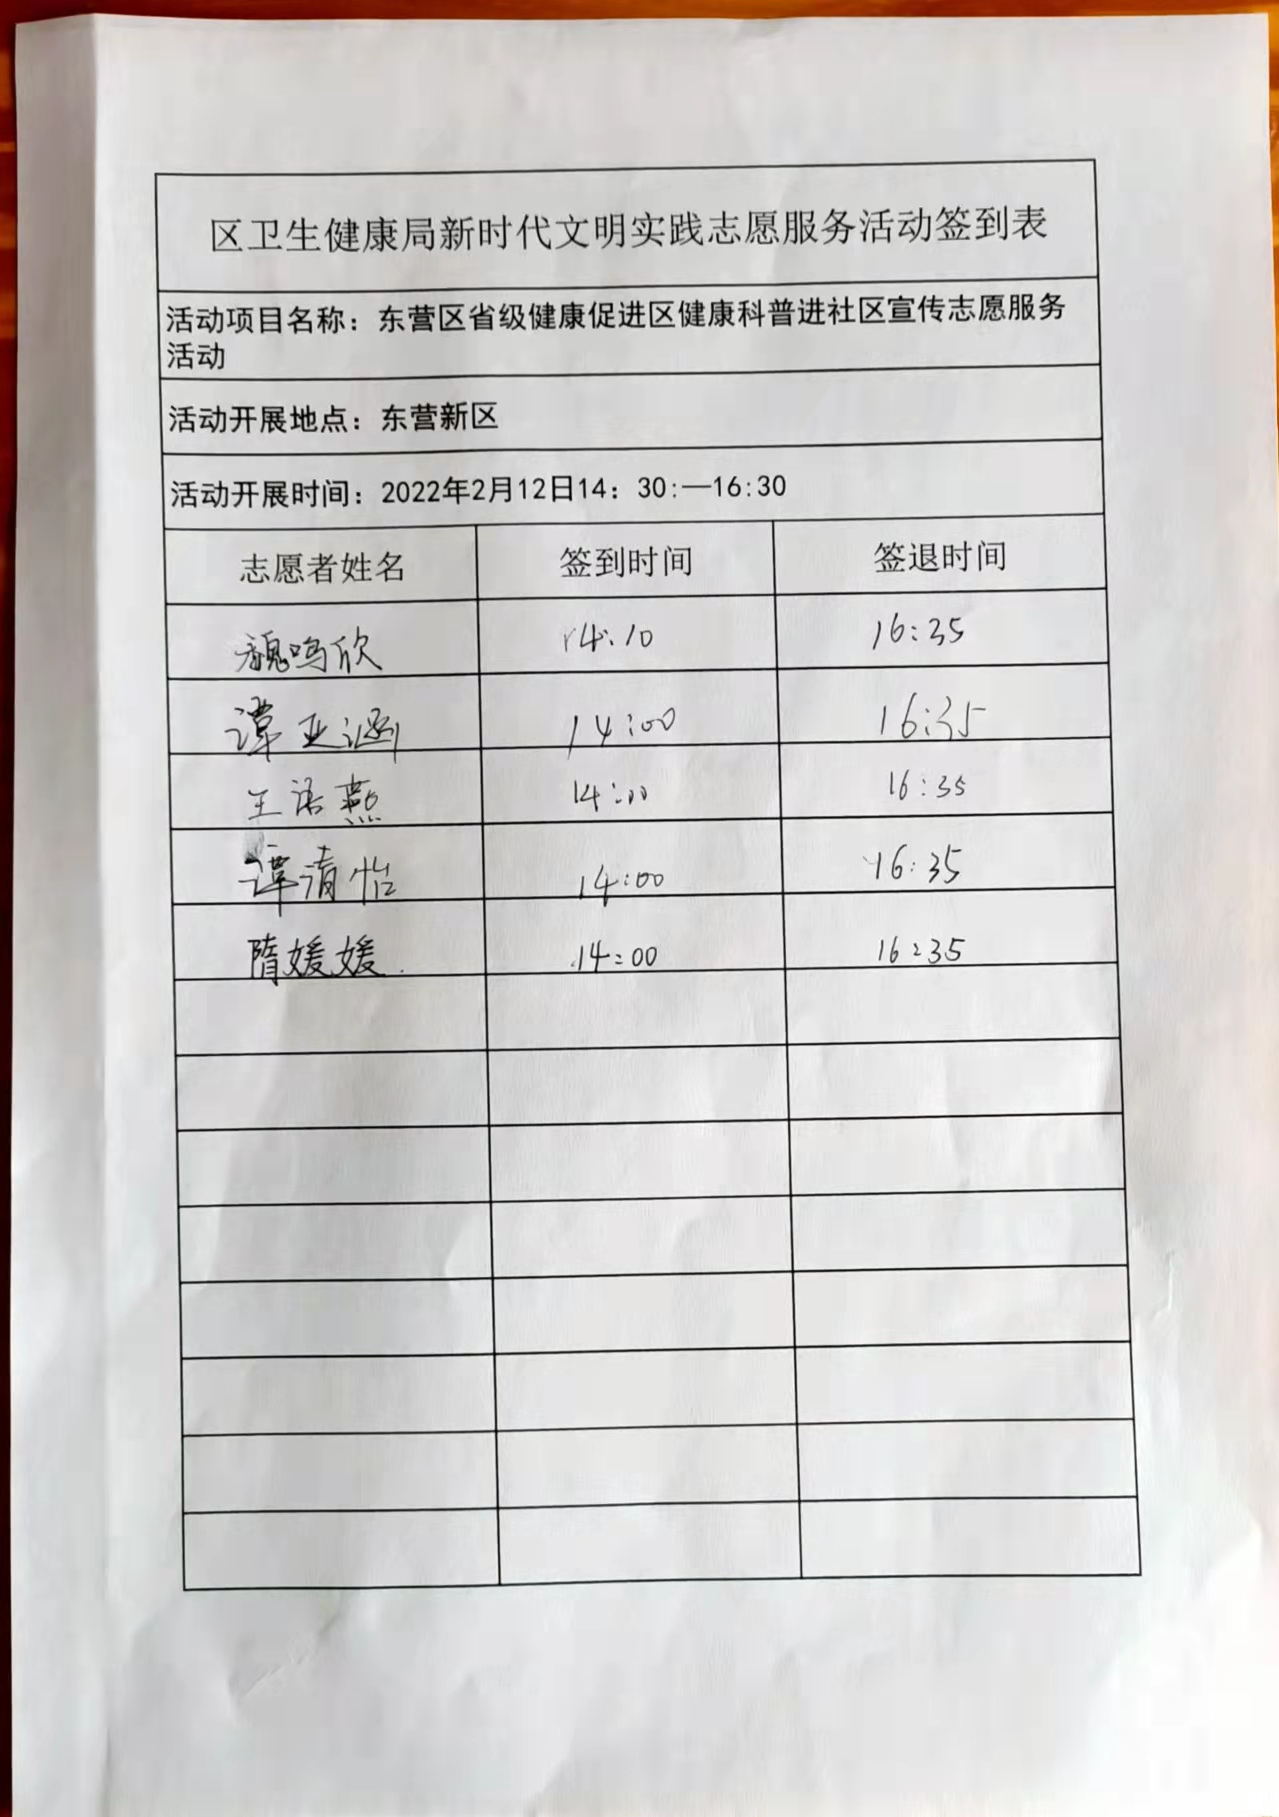 区卫生健康局新时代文明实践志愿服务活动签到表
活动项目名称：东营区省级健康促进区健康科普进社区宣传志愿服务
活动
活动开展地点：东营新区
活动开展时间：2022年2月12日14：30:—16:30
志愿者姓名 签到时间 签退时间
魏鸣欣 14:10 16:35
谭亚涵 14:00 16:35
王语燕 14:00 16:35
谭清怡 14:00 16:35
隋媛媛 14:00 16:35